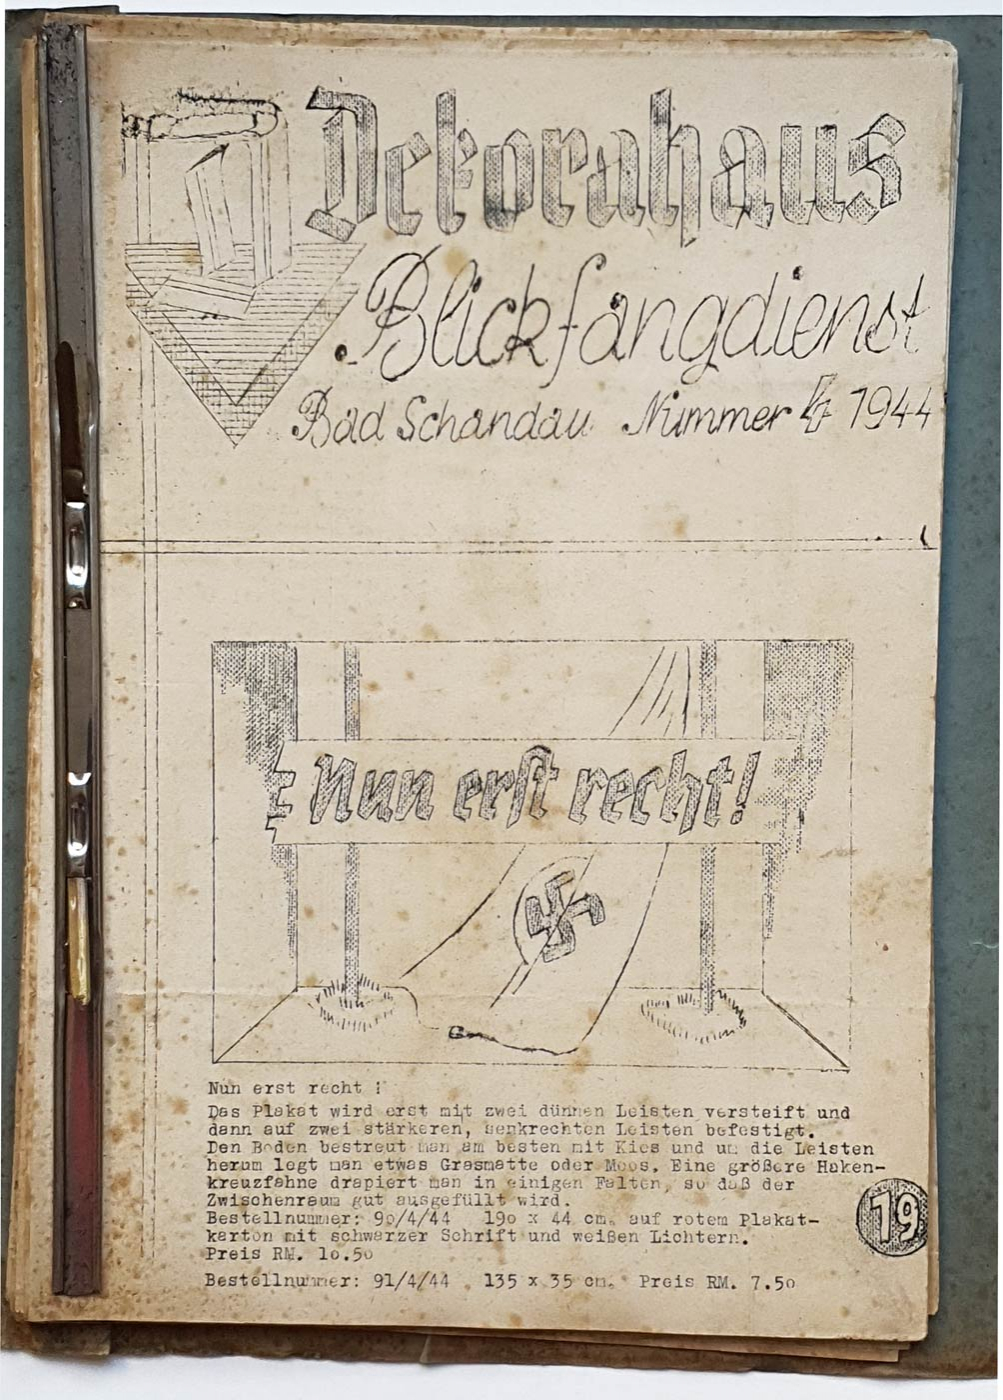 Dekorahaus
Blickfangdienst
Bad Schandau Nummer 4 1944
Nun erst recht!
Nun erst recht !
Das Plakat wird erst mit zwei dünnen Leisten versteift und
dann auf zwei stärkeren, senkrechten Leisten befestigt.
Den Boden bestreut man am besten mit Kies und um die Leisten
herum legt man etwas Grasmatte oder Moos. Eine größere Haken-
kreuzfahne drapiert man in einigen Falten, so daß der
Zwischenraum gut ausgefüllt wird.
Bestellnummer: 90/4/44 190 x 44 cm. auf rotem Plakat-
karton mit schwarzer Schrift und weißen Lichtern.
Preis RM. 10.50
Bestellnummer: 91/4/44 135 x 35 cm. Preis RM. 7.50
19